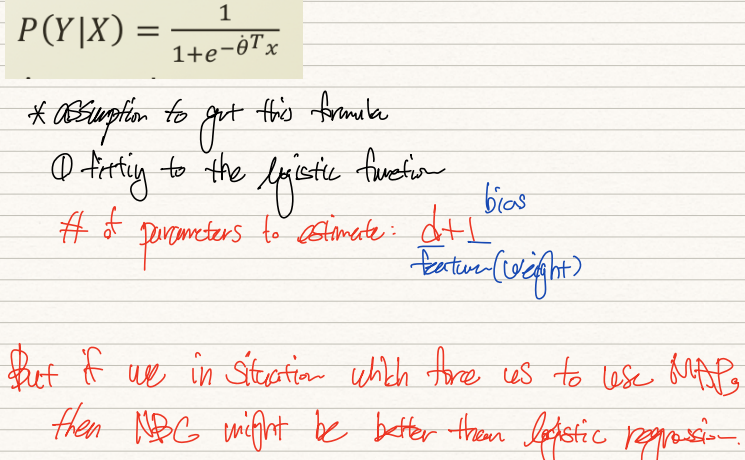 P(Y|X) = 1 / (1+e^{-θ̇^T x})
* assumption to get this formula
① fitting to the logistic function
# of parameters to estimate: d+1
bias
feature(weight)
But if we in situation which force us to use MAP,
then NBC might be better than logistic regression.